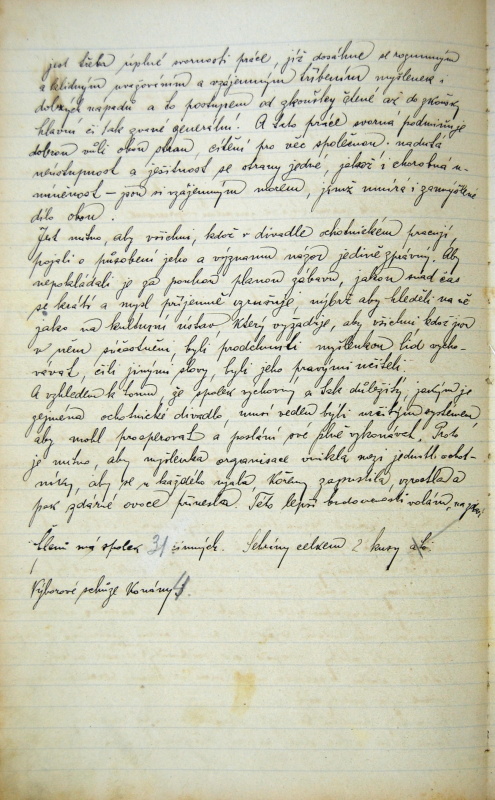 jest třeba úplné svornosti práce, již dosáhne se rozumným
a klidným uvažováním a vzájemným tříbením myšlenek,
dobrých nápadů a to postupem od zkoušky čtené až do zkoušky
hlavní či tak zvané generální. A tato práce svorná podmiňuje
dobrou vůli obou stran, cítění pro věc společnou. nadutá
neústupnost a ješitnost se strany jedné, jakož i chorobná u-
míněnost – jsou si vzájemným morem, jímž umírá i zamýšlené
dílo obou.
Jest nutno, aby všichni, kdož v divadle ochotnickém pracují,
pojali o působení jeho a významu názor jedině správný. Aby
nepokládali je za pouhou planou zábavu, jakou snad čas
se krátí a mysl příjemně vzrušuje, nýbrž aby hleděli na ně
jako na kulturní ústav který vyžaduje, aby všichni kdož jsou
v něm súčastněni, byli prodchnuti myšlenkou lid vycho-
vávat, čili jinými slovy, byli jeho pravými učiteli.
A vzhledem k tomu, že spolek výchovný a tak důležitý, jakým je
zejména ochotnické divadlo, musí veden býti určitým systémem,
aby mohl prosperovat a poslání své plně vykonávat. Proto
je nutno, aby myšlenka organisace vnikla mezi jednotl. ochot-
níky, aby se u každého ujala kořeny zapustila, vzrostla a
pak zdárné ovoce přinesla. Této lepší budoucnosti voláme, na zdar!
Členů má spolek 31 činných. Schůzy celkem 2 kusy
Výborové schůze konány 4.